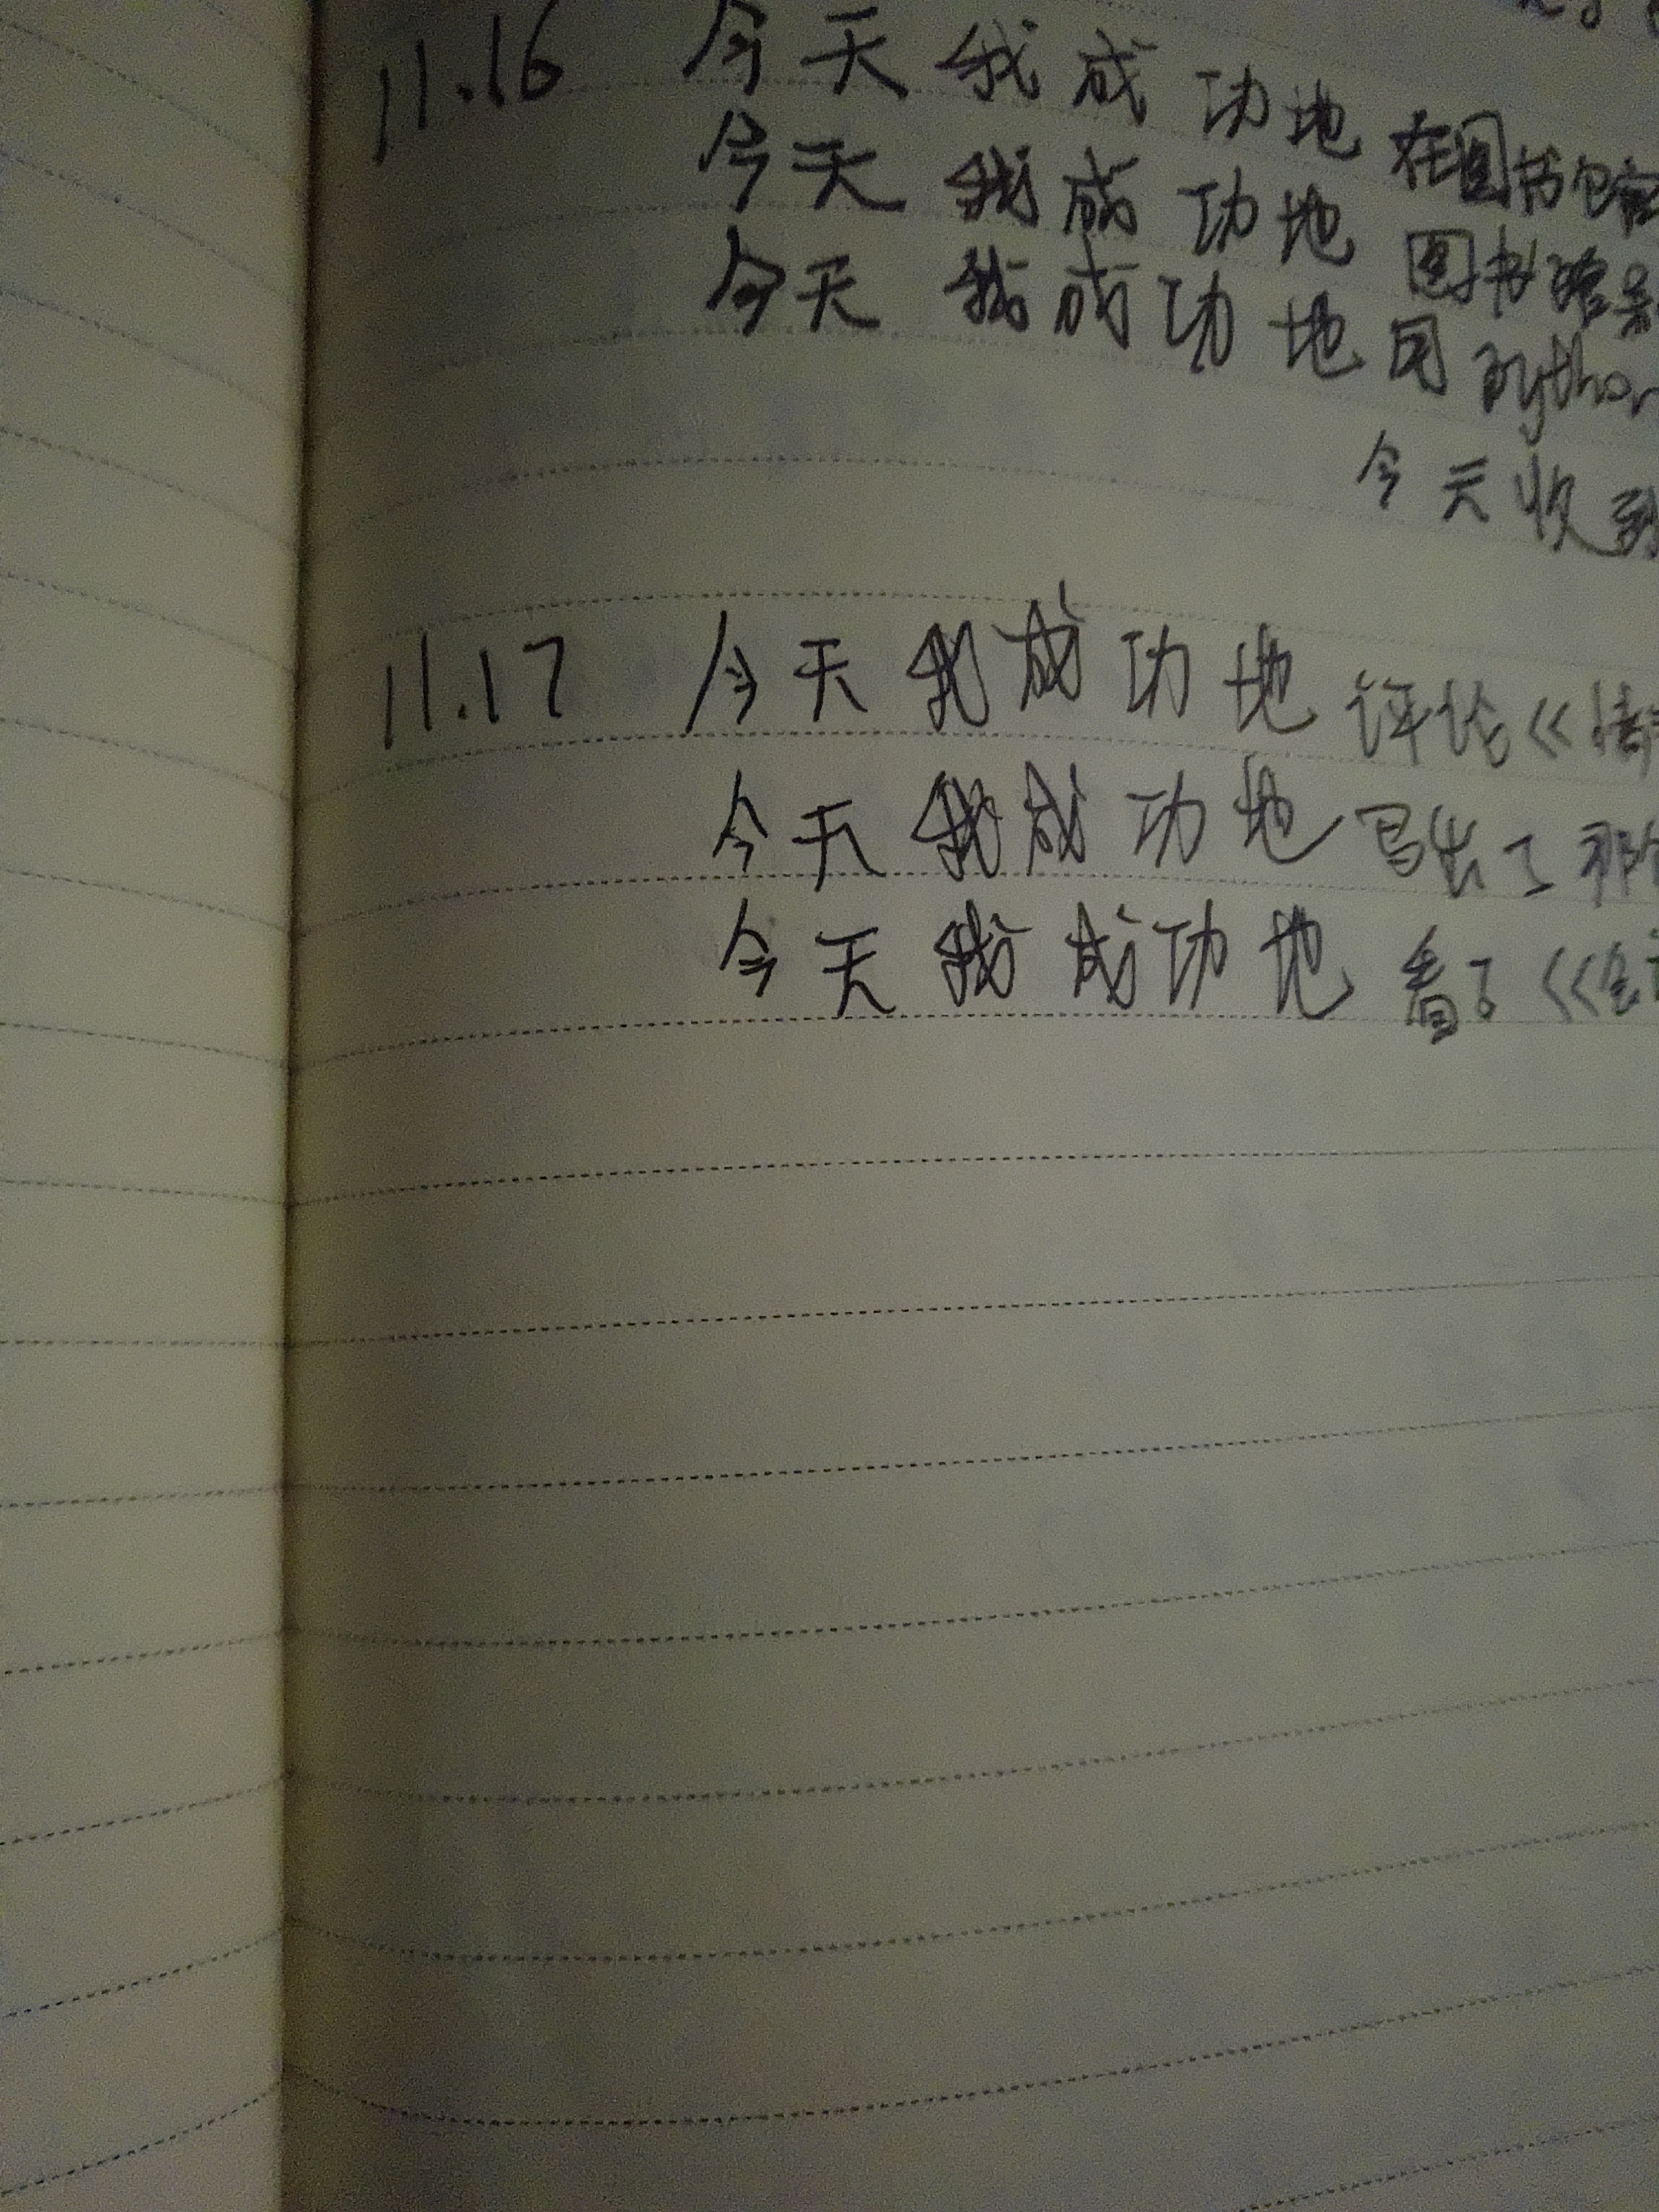 11.16 今天我成功地在图书馆
今天我成功地图书馆
今天我成功地用python
今天收到
11.17 今天我成功地评论《情
今天我成功地写出了那个
今天我成功地看了《《